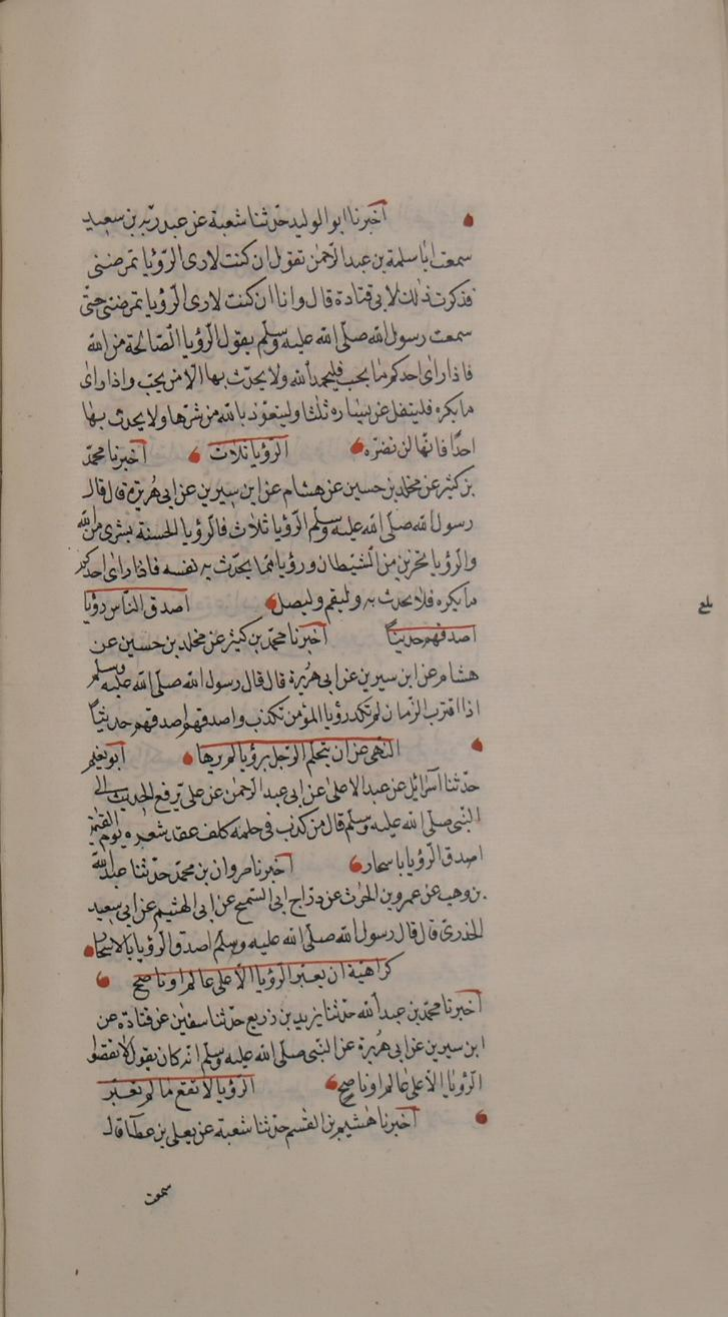 أخبرنا ابو الوليد حدّثنا شعبة عن عبد ربّه بن سعيد
سمعت ابا سلمة بن عبد الرّحمٰن تقول ان كنت لارى الرّؤيا تمرضنى
فذكرت ذلك لابى قتادة قال وانا ان كنت لارى الرّؤيا تمرضنى حتّى
سمعت رسول الله صلّى الله عليه وسلّم يقول الرّؤيا الصّالحة من الله
فاذا راى احدكم ما يحب فليحمد الله ولا يحدّث بها الّا من يحبّ واذا راى
ما يكره فليتفل عن يساره ثلثا وليتعوّذ بالله من شرّها ولا يحدث بها
احدًا فانّها لن تضرّه الرّؤيا ثلاث أخبرنا محمّد
بن كثير عن مخلد بن حسين عن هشام عن ابن سيرين عن ابى هريرة قال قال
رسول الله صلّى الله عليه وسلّم الرّؤيا ثلاث فالرّؤيا الحسنة بشرى من الله
والرّؤيا تحزين من الشّيطان ورؤيا ممّا يحدّث به نفسه فاذا راى احدكم
ما يكره فلا يحدث به وليقم وليصل اصدق النّاس رؤيا
اصدقهم حديثًا أخبرنا محمّد بن كثير عن مخلد بن حسين عن
هشام عن ابن سيرين عن ابى هريرة قال قال رسول الله صلّى الله عليه وسلّم
اذا اقترب الزّمان لم تكد رؤيا المؤمن تكذب واصدقهم اصدقهم حديثًا
النّهى عن ان يتحلم الرّجل برؤيا لم يرها ابو نعيم
حدّثنا اسرائيل عن عبد الاعلى عن ابى عبد الرّحمٰن عن على يرفع الحديث الى
النّبى صلّى الله عليه وسلّم قال من كذب فى حلمه كلف عقد شعيره يوم القيٰمة
اصدق الرّؤيا باسحار أخبرنا مروان بن محمّد حدّثنا عبد الله
بن وهب عن عمرو بن الحٰرث عن درّاج ابى السّمح عن ابى الهثيم عن ابى سعيد
الخدرىّ قال قال رسول الله صلّى الله عليه وسلّم اصدق الرّؤيا بالاسحار
كراهية ان يعبّر الرّؤيا الّا على عالم او ناصح
أخبرنا محمّد بن عبد الله حدّثنا يزيد بن زريع حدّثنا سفيٰن عن قتادة عن
ابن سيرين عن ابى هريرة عن النّبى صلّى الله عليه وسلّم انّه كان يقول لا تقصّوا
الرّؤيا الّا على عالم او ناصح الرّؤيا لا تقع ما لم تعبّر
أخبرنا هٰشيم بن القٰسم حدّثنا شعبة عن يعلى بن عطآ قال
سمعت
بلغ